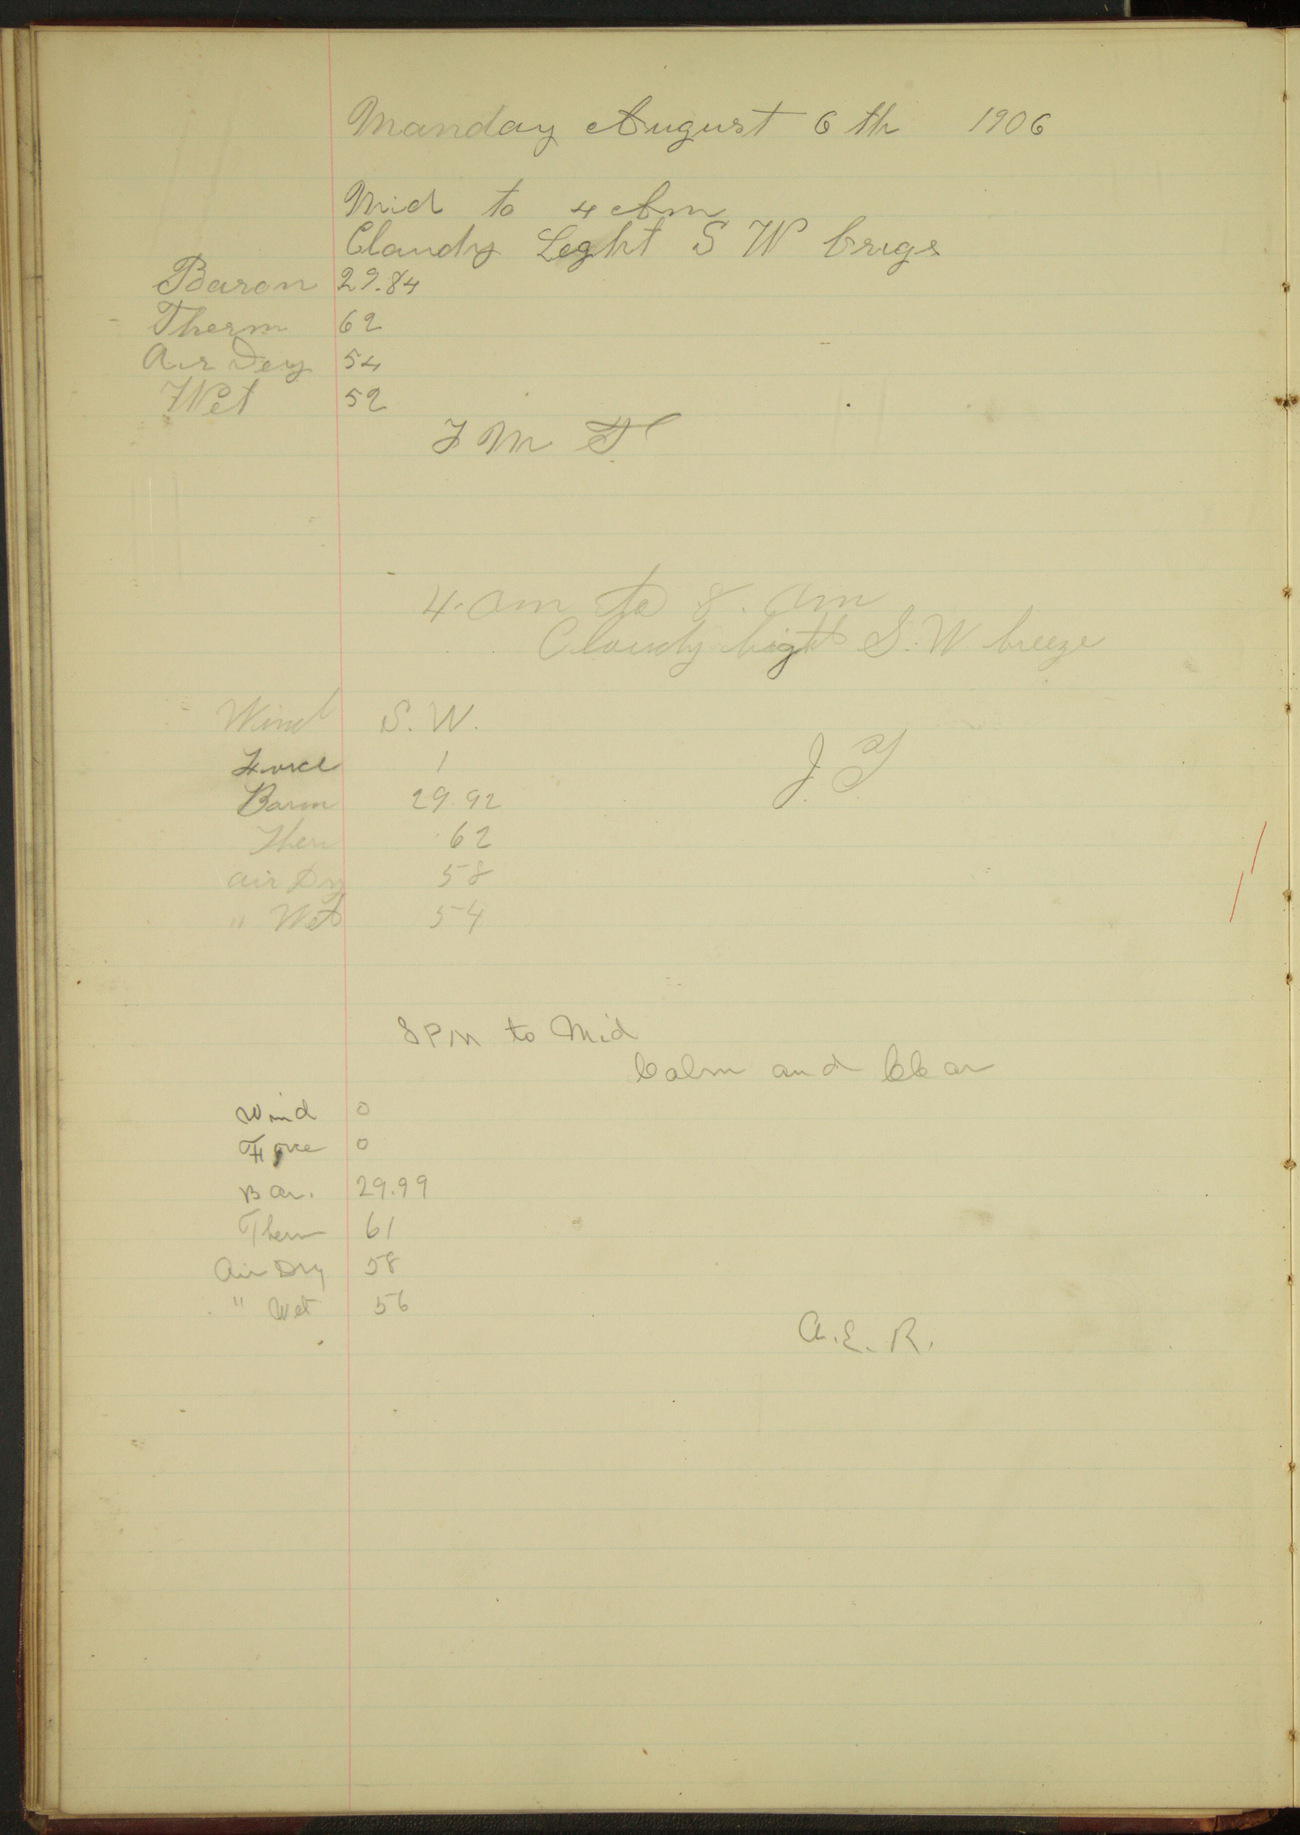 Manday August 6 th 1906
Mid to 4 Am
Claudy Leght S W brigs
Baron 29.84
Therm 62
Air Dey 54
Wet 52
F M F
4. am to 8. Am
Cloudy light S. W breeze
Wind S. W.
Force 1
J. T
Barm 29.92
Ther 62
air Dry 58
" Wet 54
8 PM to Mid
Calm and Clear
Wind 0
Force 0
Bar. 29.99
Therm 61
Air Dry 58
" Wet 56
A. E. R.